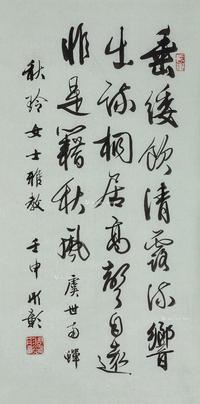 垂緌飲清露流響
出疏桐居高聲自遠
非是籍秋風 虞世南蟬
秋玲女士雅教
壬申 彰